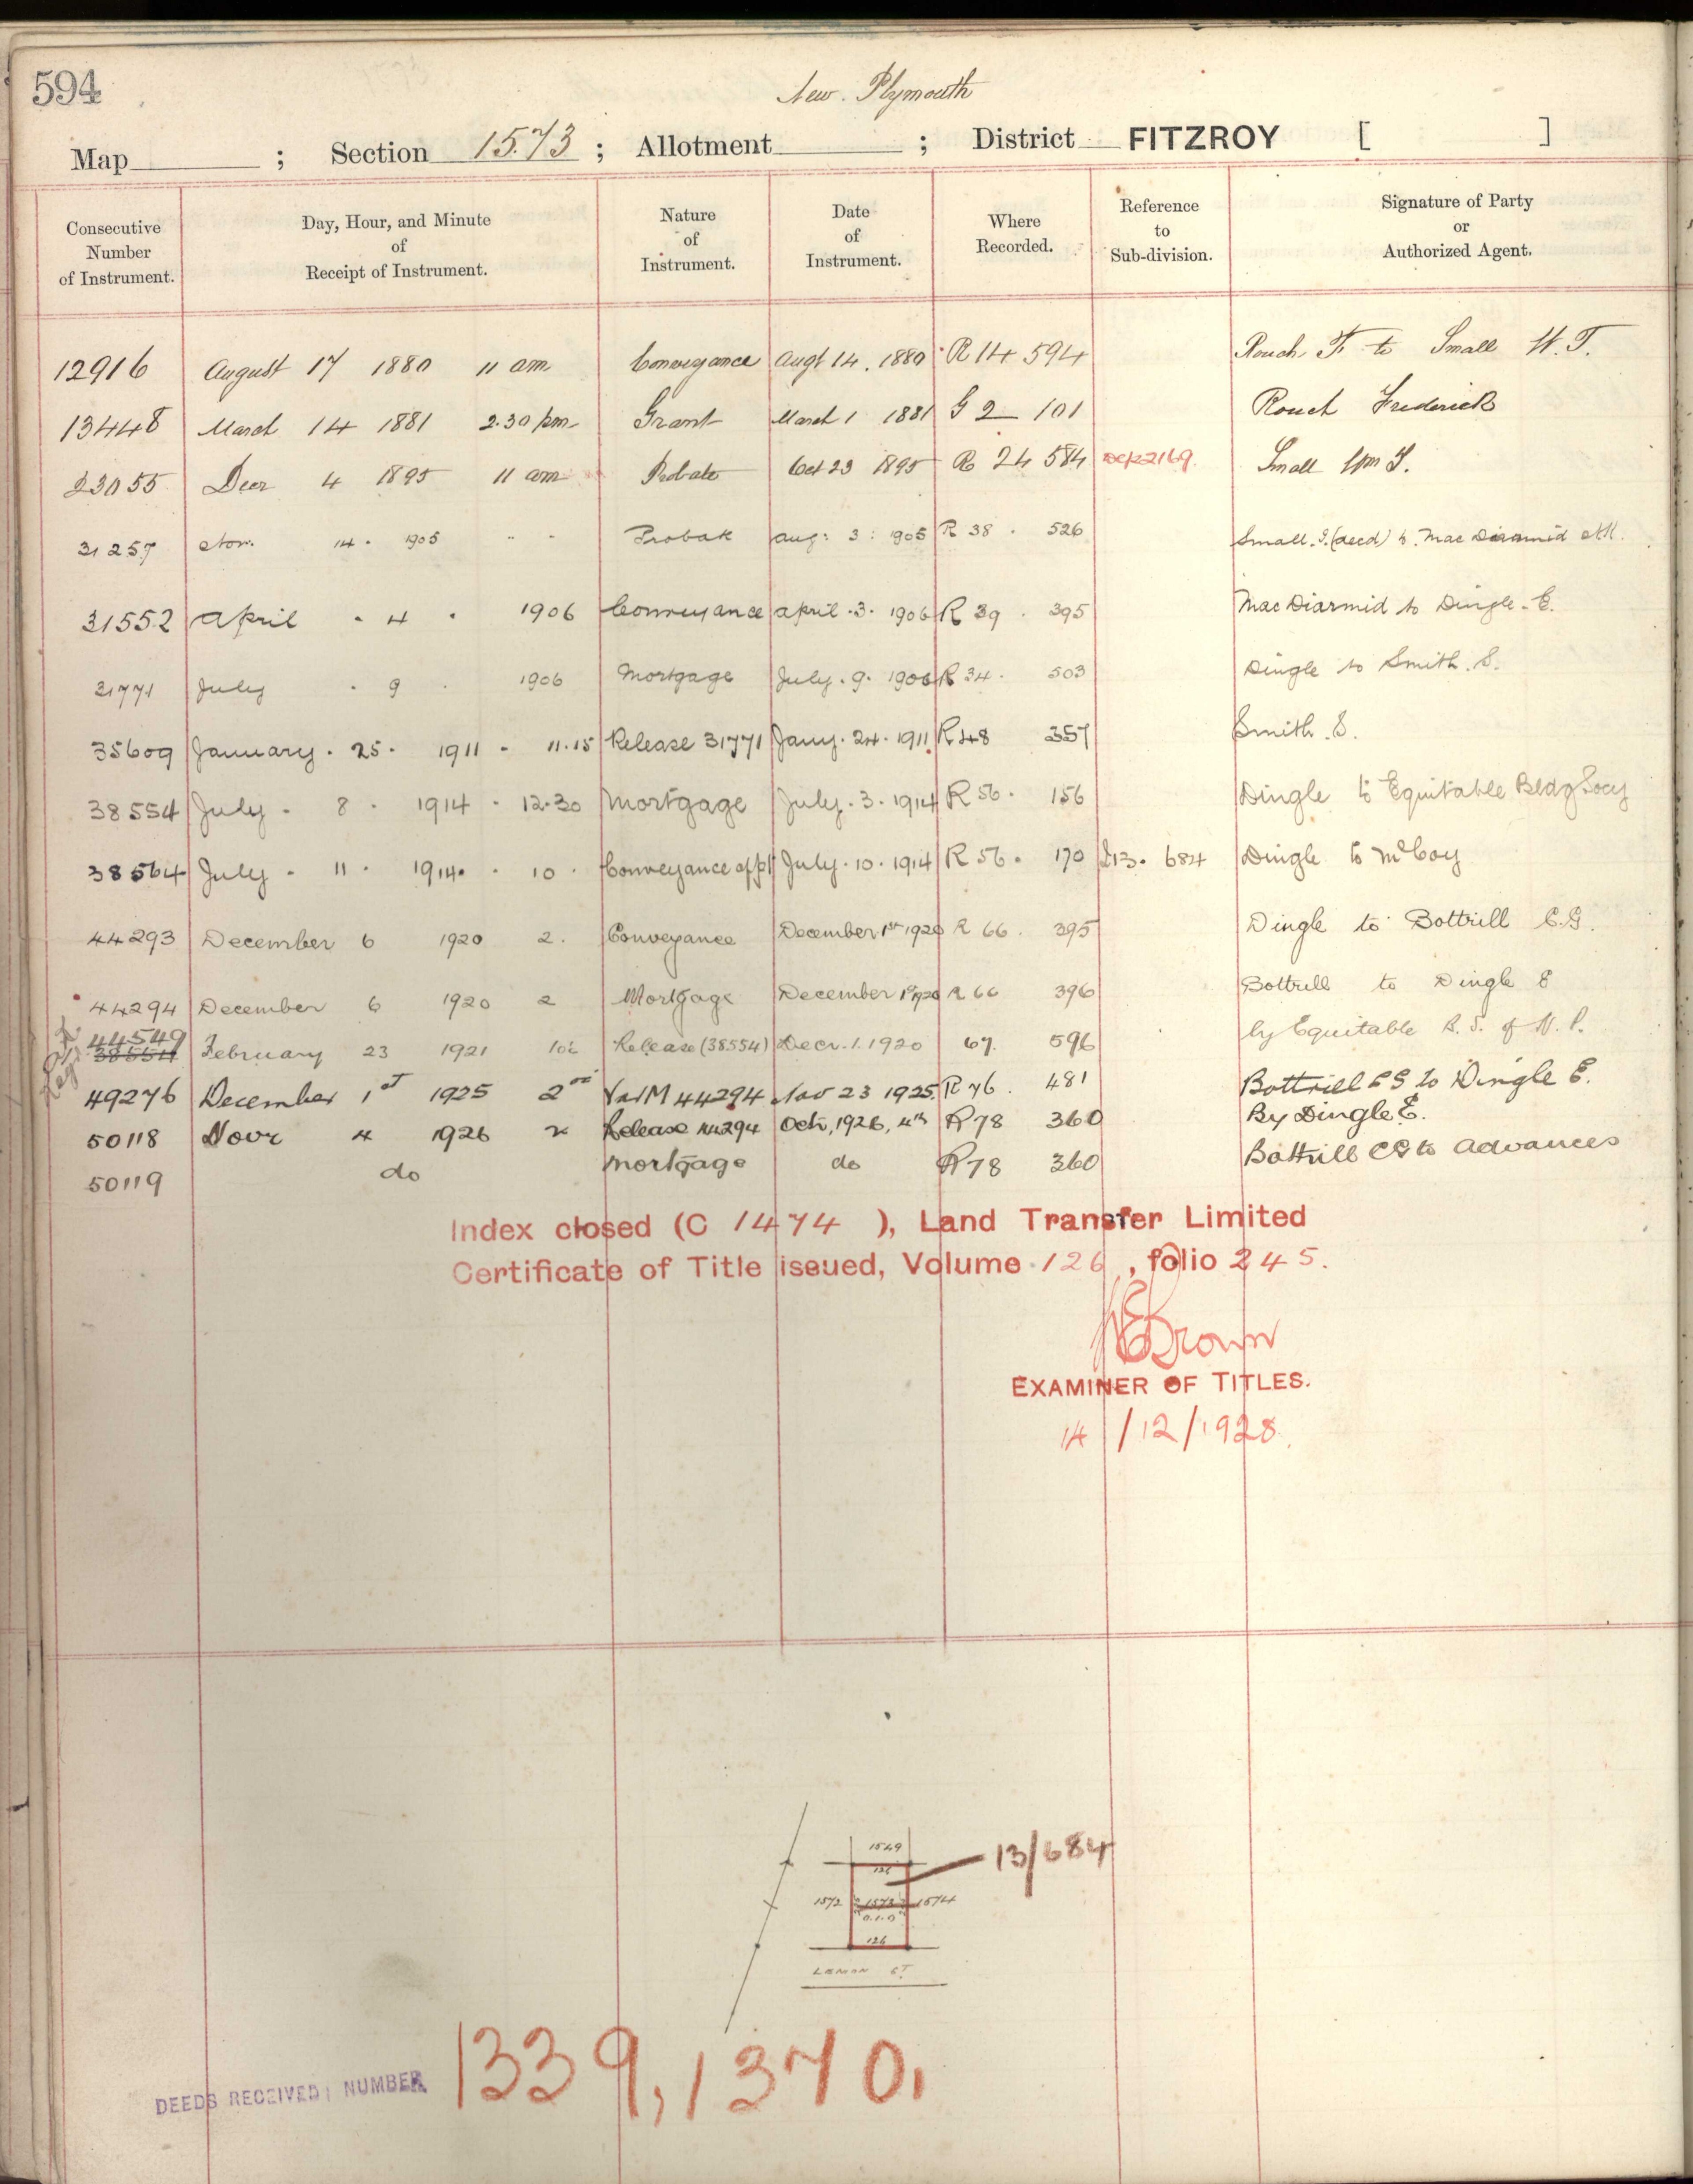 594
New Plymouth
Map ; Section 1573 ; Allotment ; District FITZROY [ ]
Consecutive Number of Instrument. Day, Hour, and Minute of Receipt of Instrument. Nature of Instrument. Date of Instrument. Where Recorded. Reference to Sub-division. Signature of Party or Authorized Agent.
12916 August 17 1880 11 am Conveyance Augt 14. 1880 R 14 594 Rouch F. to Small W. T.
13448 March 14 1881 2.30 pm Grant March 1 1881 G 2 101 Rouch Frederick
23055 Decr 4 1895 11 am Probate Oct 23 1895 R 24 584 2169 Small Wm T.
31257 Nov. 14. 1905 Probate aug: 3: 1905 R 38. 526 Small. T. (decd) to. Mac Diarmid
31552 April . 4 . 1906 Conveyance april. 3. 1906 R 39. 395 Mac Diarmid to Dingle. E.
31771 July . 9 . 1906 Mortgage July. 9. 1906 R 34. 503 Dingle to Smith. S.
35609 January. 25. 1911 - 11.15 Release 31771 Jany. 24. 1911 R 48 357 Smith. S.
38554 July - 8 . 1914 - 12.30 Mortgage July. 3. 1914 R 56. 156 Dingle to Equitable Bldg Socy
38564 July - 11 . 1914. - 10 . Conveyance of pt July. 10. 1914 R 56. 170 I13. 684 Dingle to McCoy
44293 December 6 1920 2. Conveyance December 1st 1920 R 66. 395 Dingle to Bottrill C.G.
44294 December 6 1920 2 Mortgage December 1st 1920 R 66 396 Bottrill to Dingle E
44549
38554 February 23 1921 Release (38554) Decr. 1. 1920 67. 596 by Equitable B. S. of N. P.
49276 December 1st 1925 2 Var M 44294 Nov 23 1925. R 76. 481 Bottrill C G to Dingle E.
50118 Novr 4 1926 Release 44294 Oct, 1926, 4th R 78 360 By Dingle E.
50119 do Mortgage do R 78 360 Bottrill CG to Advances
Index closed (C 1474 ), Land Transfer Limited
Certificate of Title issued, Volume 126, folio 245.
Brown
EXAMINER OF TITLES.
14/12/1928.
1549
13/684
126
1572 1573 1574
0.1.0
126
LEMON ST.
DEEDS RECEIVED; NUMBER 1339, 1370,